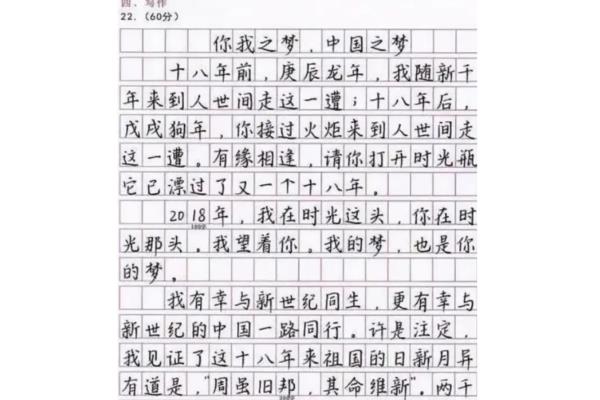 四、写作
22.（60分）
你我之梦，中国之梦
十八年前，庚辰龙年，我随新千
年来到人世间走这一遭；十八年后，
戊戌狗年，你接过火炬来到人世间走
这一遭。有缘相逢，请你打开时光瓶
它已漂过了又一个十八年。
2018年，我在时光这头，你在时
光那头。我望着你。我的梦，也是你
的梦。
我有幸与新世纪同生，更有幸与
新世纪的中国一路同行。许是注定，
我见证了这十八年来祖国的日新月异
有道是，“周虽旧邦，其命维新”。两千